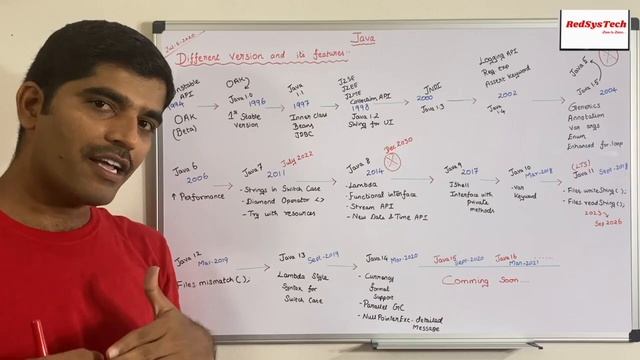 RedSysTech
Jul-5-2020
Java
Different version and its features..
Unstable
API
1994
OAK
(Beta)
OAK
Java 1.0
1996
1st Stable
Version
Java
1.1
1997
Inner class
Beans
JDBC
J2SE
J2EE
J2ME
Collection API
1998
Java 1.2
Swing for UI
JNDI
2000
Java 1.3
Logging API
Reg exp
Assert keyword
2002
Java
1.4
Java 5
Java 1.5
2004
Generics
Annotation
Var args
Enum
Enhanced for loop
Java 6
2006
↑ Performance
Java 7
July 2022
2011
- Strings in Switch Case
- Diamond Operator <>
- Try with resources
Java 8
Dec 2030
2014
- Lambda
- Functional interface
- Stream API
- New Date & Time API
Java 9
2017
- JShell
- Interface with
private
methods
Java 10
Mar-2018
- Var
Keyword
(LTS)
Java 11
Sept-2018
- Files.writeString();
- Files.readString();
2023
Sep 2026
Java 12
Mar-2019
Files.mismatch();
Java 13
Sept-2019
Lambda Style
Syntax for
Switch Case
Java 14
Mar-2020
- Currency
format
Support
- Parallel GC
- NullPointerExc-detailed
Message
Java 15
Sept-2020
Java 16
Mar-2021
Comming Soon...